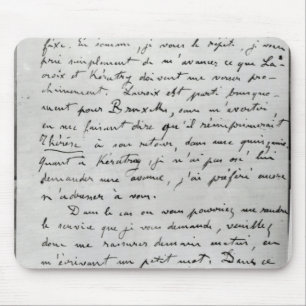 faxe. En somme, je vous le répète. je vous
prie simplement de m'avancer ce que La-
croix et Kératry doivent me verser pro-
chainement. Lacroix est parti brusque-
ment pour Bruxelles, sans m'avertir
en me faisant dire que il réimprimerait
Thérèse à son retour, dans une quinzaine
quant à Kératry, je n'ai pas osé lui
demander une avance, j'ai préféré encore
m'adresser à vous.
Dans le cas où vous pourriez me rendre
le service que je vous demande, veuillez
donc me rassurer demain matin, en
m'écrivant un petit mot. Dans ce